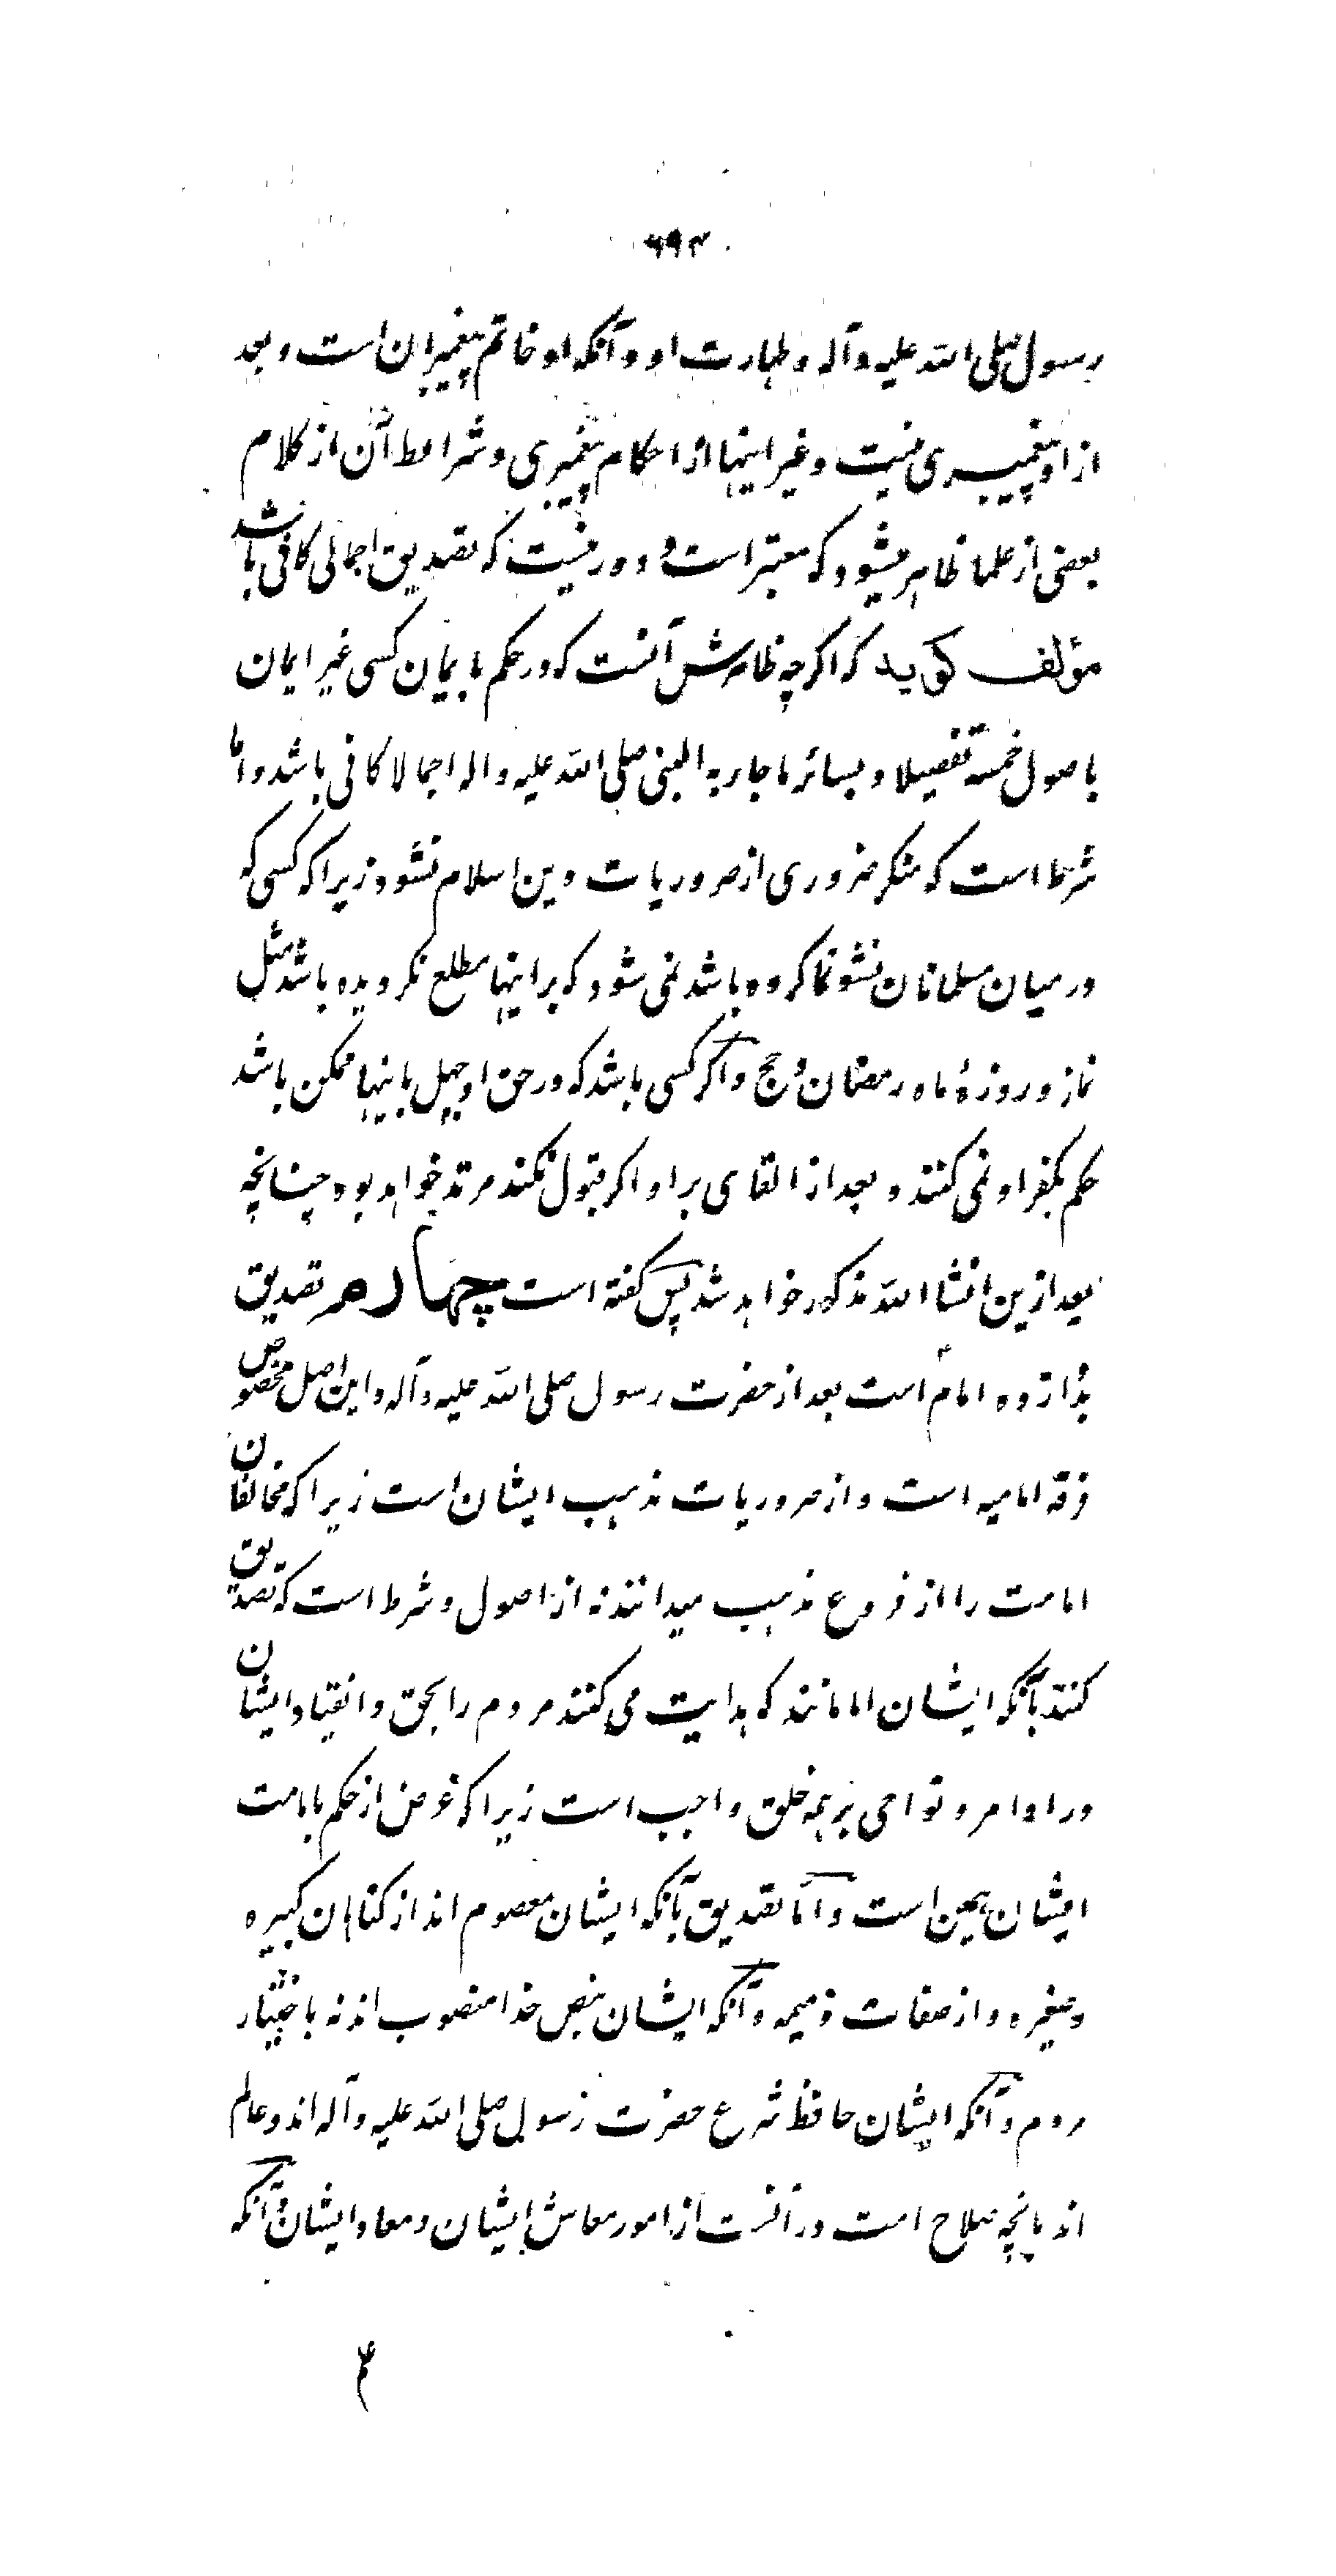 ۶۹۴
رسول صلی الله علیه وآله و طهارت او و آنکه او خاتم پیغمبران است و بعد
از او پیغمبری نیست و غیر اینها از احکام پیغمبری و شرائط آن از کلام
بعضی از علما ظاهر میشود که معتبر است و دور نیست که تصدیق اجمالی کافی باشد
مؤلف کوید که اکرچه ظاهرش آنست که در حکم بایمان کسی غیر ایمان
باصول خمسه تفصیلا و بسائر ما جاء به النبی صلی الله علیه واله اجمالا کافی باشد و اما
شرط است که منکر ضروری از ضروریات دین اسلام نشود زیرا که کسی که
در میان مسلمانان نشو نما کرده باشد نمی شود که بر اینها مطلع نکردیده باشد مثل
نماز و روزهٔ ماه رمضان و حج و اکر کسی باشد که در حق او جهل باینها ممکن باشد
حکم بکفر او نمی کنند و بعد از القای بر او اکر قبول نکند مرتد خواهد بود چنانچه
بعد ازین انشا الله مذکور خواهد شد پس کفته است چهارم تصدیق
بدوازده امام است بعد از حضرت رسول صلی الله علیه وآله و این اصل مخصوص
فرقه امامیه است و از ضروریات مذهب ایشان است زیرا که مخالفان
امامت را از فروع مذهب میدانند نه از اصول و شرط است که تصدیق
کنند بآنکه ایشان امامانند که هدایت می کنند مردم را بحق و انقیاد ایشان
در اوامر و نواهی بر همه خلق واجب است زیرا که غرض از حکم بامامت
ایشان همین است و اما تصدیق بآنکه ایشان معصوم اند از کناهان کبیره
و صغیره و از صفات ذمیمه و آنکه ایشان بنص خدا منصوب اند نه باختیار
مردم و آنکه ایشان حافظ شرع حضرت رسول صلی الله علیه وآله اند و عالم
اند بانچه صلاح امت در آنست از امور معاش ایشان و معاد ایشان و آنکه